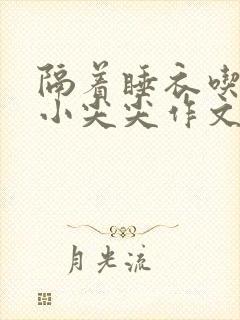 隔着睡衣喫
小尖尖作文
月光流